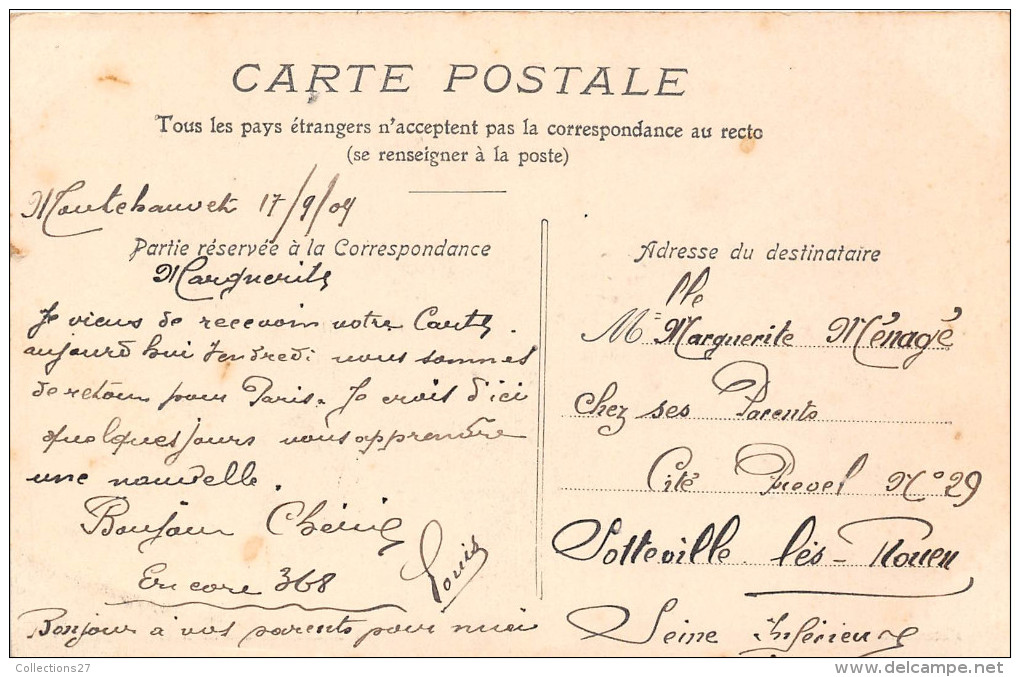 CARTE POSTALE
Tous les pays étrangers n'acceptent pas la correspondance au recto
(se renseigner à la poste)
Montchauvet 17/9/09
Partie réservée à la Correspondance
Marguerite
Je viens de recevoir votre Carte.
aujourd hui Vendredi nous sommes
de retour pour Paris. Je crois d'ici
quelques jours vous apprendre
une nouvelle.
Bonjour Chérie
Louis
Encore 368
Bonjour à vos parents pour moi
Adresse du destinataire
Mlle Marguerite Ménagé
Chez ses Parents
Cité Prevel No 29
Sotteville lès-Rouen
Seine Inférieure
Collections27
www.delcampe.net